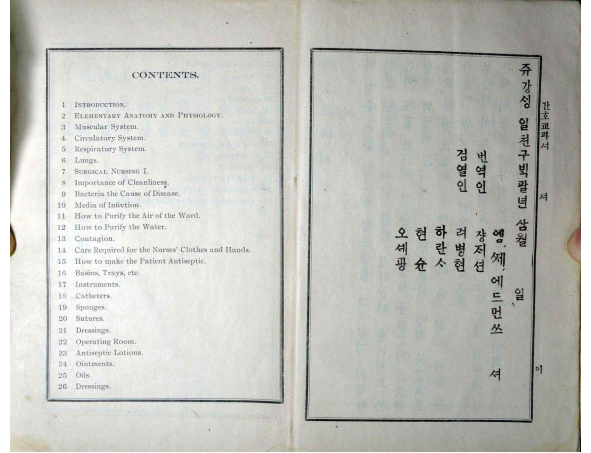 CONTENTS.
1 INTRODUCTION.
2 ELEMENTARY ANATOMY AND PHYSIOLOGY.
3 Muscular System.
4 Circulatory System.
5 Respiratory System.
6 Lungs.
7 SURGICAL NURSING I.
8 Importance of Cleanliness.
9 Bacteria the Cause of Disease.
10 Media of Infection.
11 How to Purify the Air of the Ward.
12 How to Purify the Water.
13 Contagion.
14 Care Required for the Nurses' Clothes and Hands.
15 How to make the Patient Antiseptic.
16 Basins, Trays, etc.
17 Instruments.
18 Catheters.
19 Sponges.
20 Sutures.
21 Dressings.
22 Operating Room.
23 Antiseptic Lotions.
24 Ointments.
25 Oils.
26 Dressings.
간호교과셔 셔 이
쥬강싱 일쳔구빅팔년 삼월 일
엠, 쎄, 에드먼쓰 셔
번역인 쟝지션
검열인 려병현
하란사
현슌
오셰광